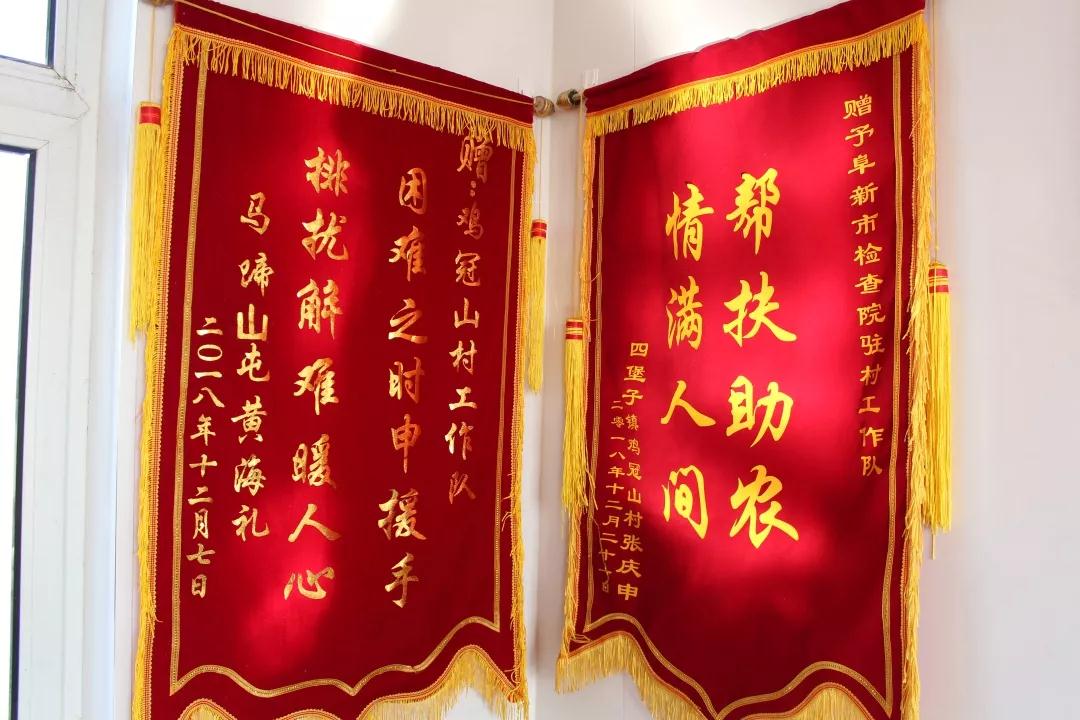 赠:鸡冠山村工作队
困难之时申援手
排扰解难暖人心
马蹄山屯黄海礼
二〇一八年十二月七日
赠予阜新市检查院驻村工作队
帮扶助农
情满人间
四堡子镇鸡冠山村张庆申
二零一八年十二月二十日